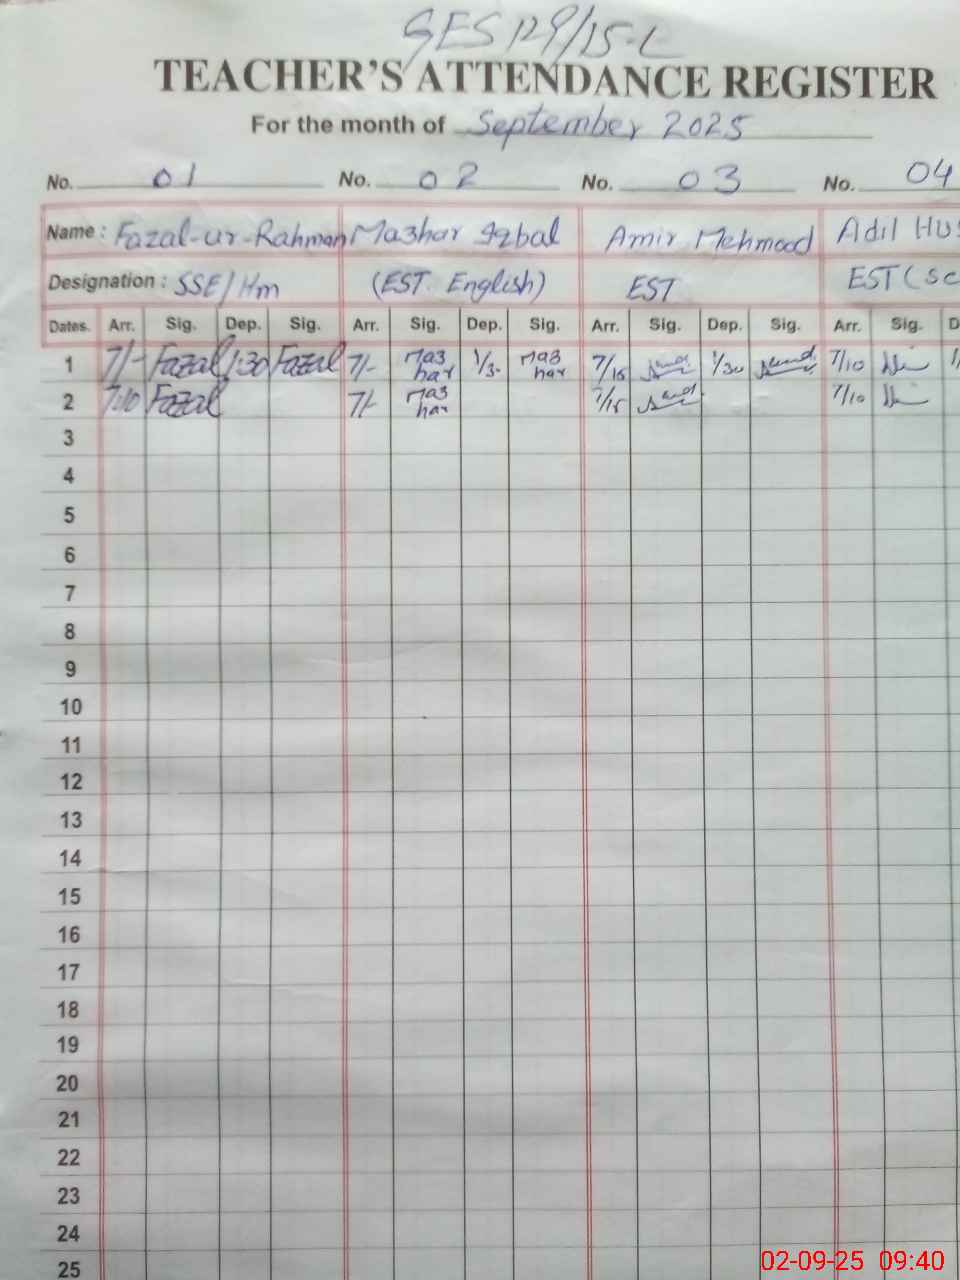 GES 129/15-L
TEACHER'S ATTENDANCE REGISTER
For the month of September 2025
No. 01 No. 02 No. 03 No. 04
Name : Fazal-ur-Rahman Mazhar Iqbal Amir Mehmood Adil Hus
Designation : SSE/Hm (EST. English) EST EST (Sc
Dates. Arr. Sig. Dep. Sig. Arr. Sig. Dep. Sig. Arr. Sig. Dep. Sig. Arr. Sig. D
1 7/- Fazal 1:30 Fazal 7/- Mazhar 1/3- Mazhar 7/15 1/30 7/10
2 7:10 Fazal 7/- Mazhar 7/15 7/10
3
4
5
6
7
8
9
10
11
12
13
14
15
16
17
18
19
20
21
22
23
24
25
02-09-25 09:40